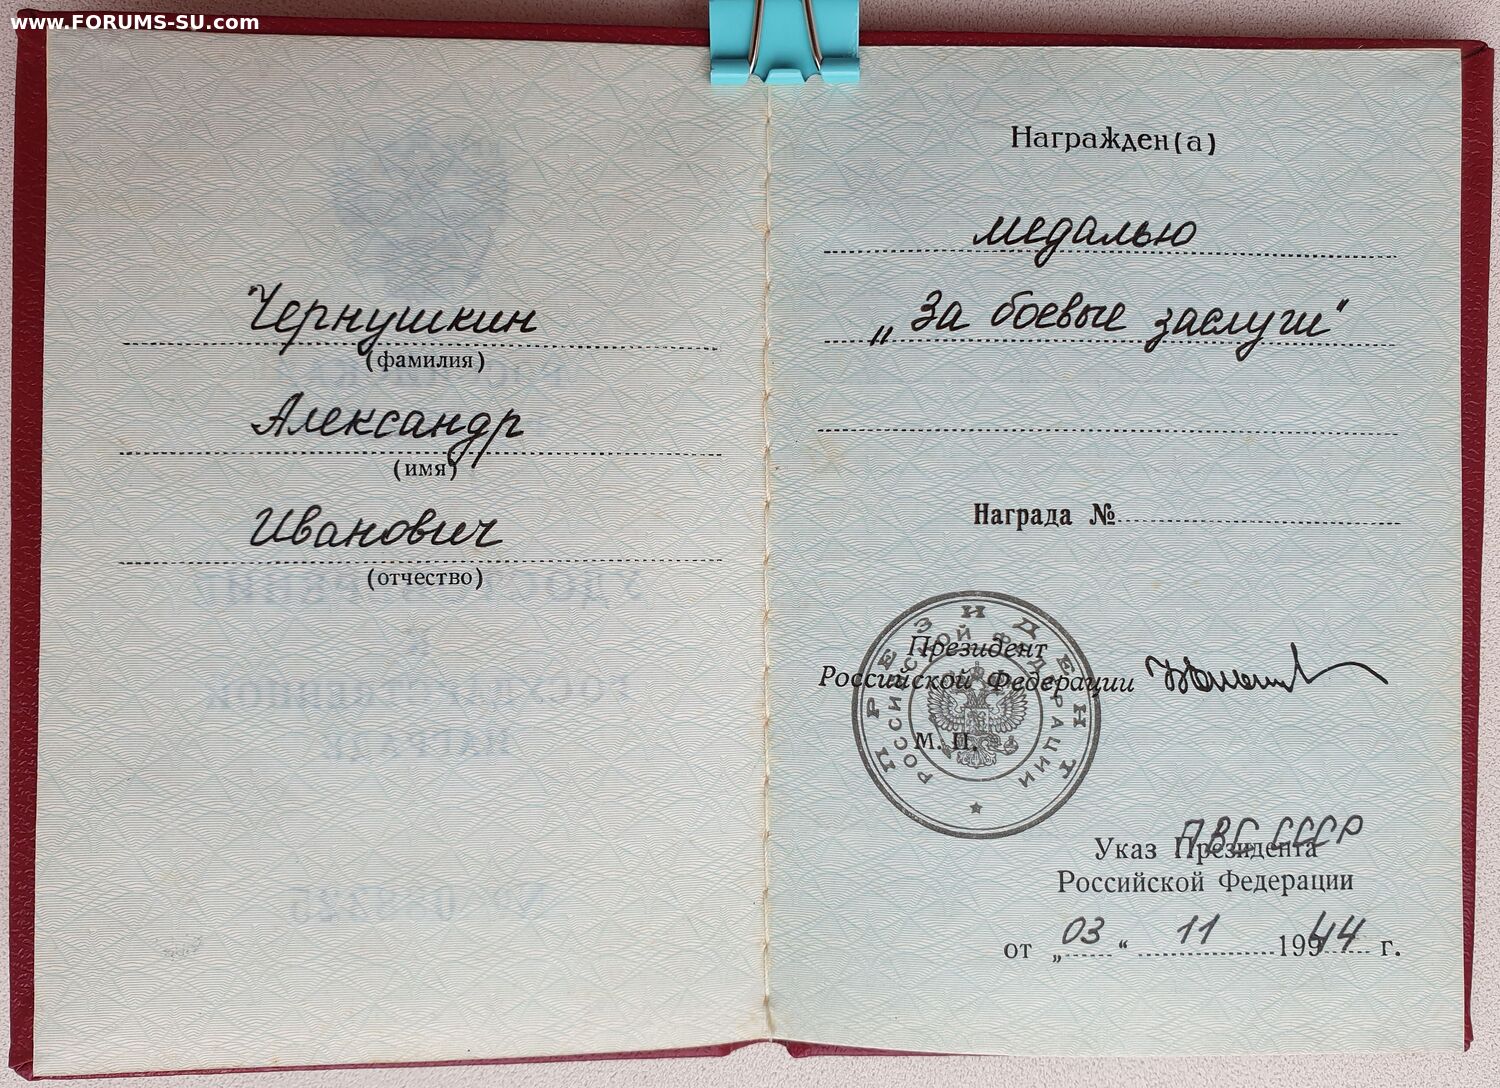 www.FORUMS-SU.com
Чернушкин
(фамилия)
Александр
(имя)
Иванович
(отчество)
Награжден(а)
медалью
„За боевые заслуги"
Награда №
ПРЕЗИДЕНТ
РОССИЙСКОЙ ФЕДЕРАЦИИ
Президент
Российской Федерации
М. П.
ПВС СССР
Указ Президента
Российской Федерации
от „03“ 11 19944 г.